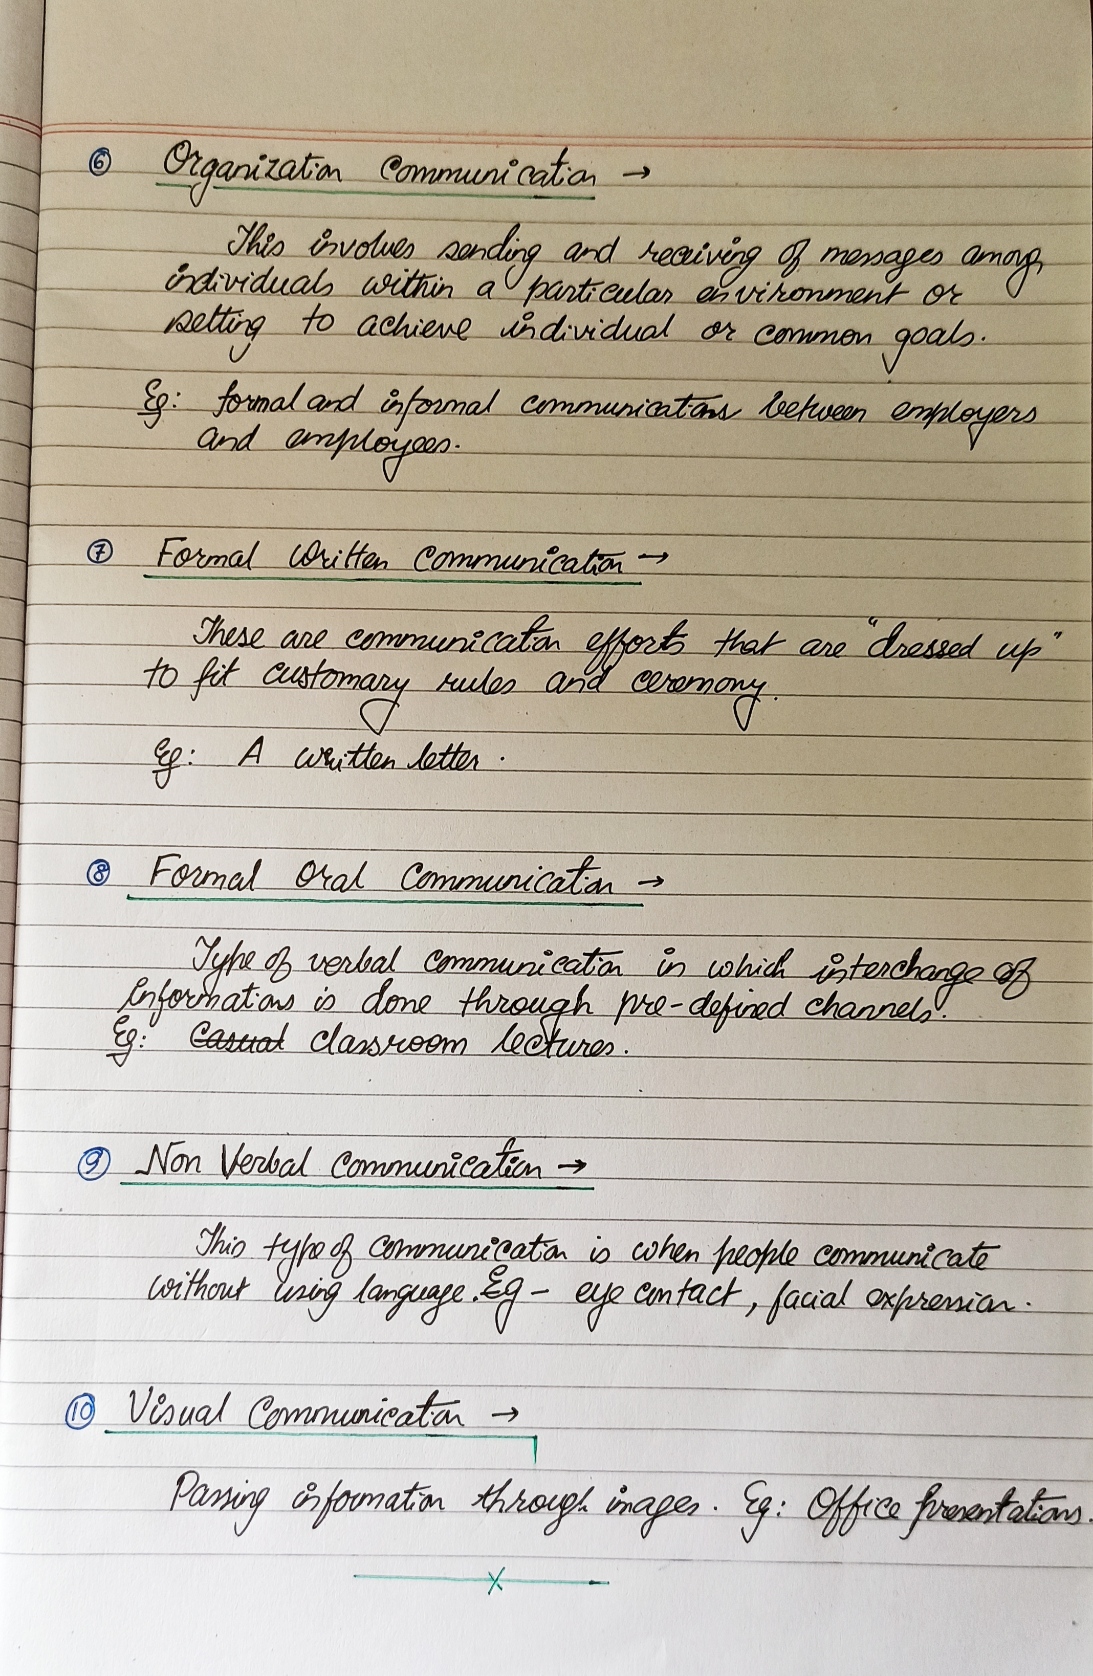 ⑥ Organization Communication →
This involves sending and receiving of messages among
individuals within a particular environment or
setting to achieve individual or common goals.
Eg: formal and informal communications between employers
and employees.
⑦ Formal Written Communication →
These are communication efforts that are "dressed up"
to fit customary rules and ceremony.
Eg: A written letter.
⑧ Formal Oral Communication →
Type of verbal communication in which interchange of
informations is done through pre-defined channels.
Eg: Casual classroom lectures.
⑨ Non Verbal Communication →
This type of communication is when people communicate
without using language. Eg - eye contact, facial expression.
⑩ Visual Communication →
Passing information through images. Eg: Office presentations.
X